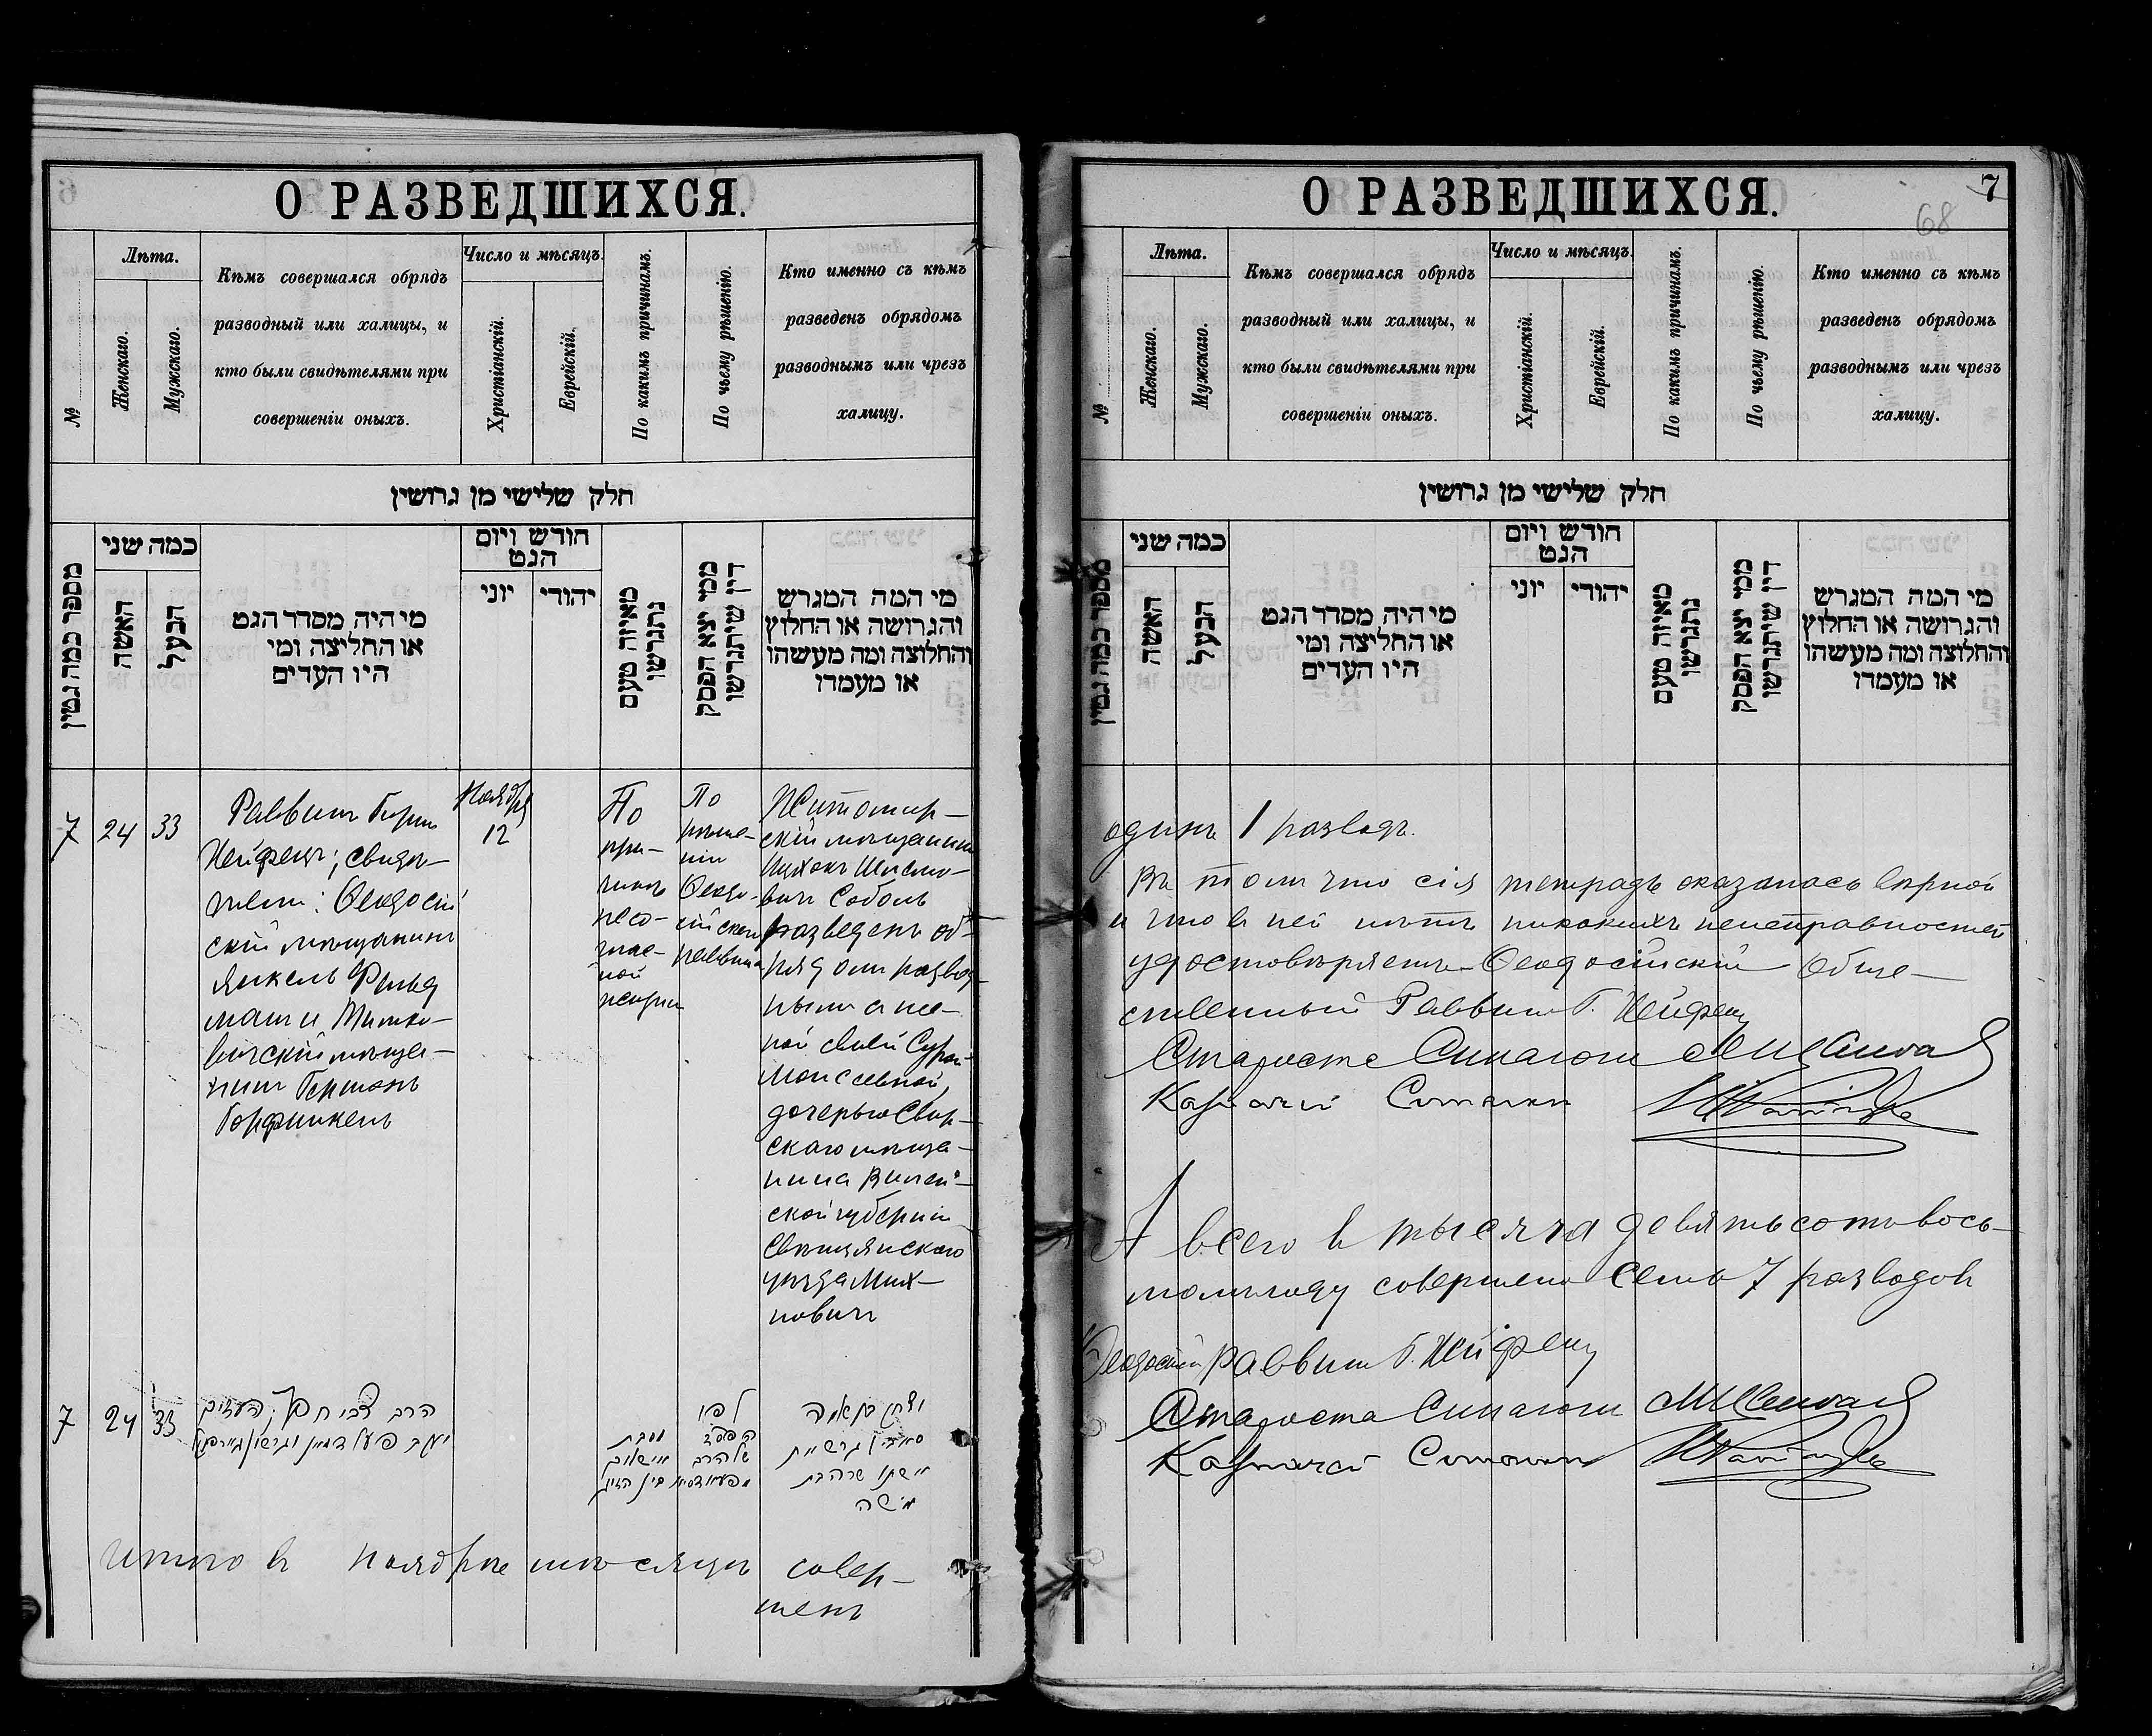 О РАЗВЕДШИХСЯ.
№
Лѣта.
Женскаго.
Мужскаго.
Кѣмъ совершался обрядъ
разводный или халицы, и
кто были свидѣтелями при
совершеніи оныхъ.
Число и мѣсяцъ.
Христіанскій.
Еврейскій.
По какимъ причинамъ.
По чьему рѣшенію.
Кто именно съ кѣмъ
разведенъ обрядомъ
разводнымъ или чрезъ
халицу.
חלק שלישי מן גרושין
מספר כמה גטין
כמה שני
האשה
הבעל
מי היה מסדר הגט
או החליצה ומי
היו העדים
חודש ויום
הגט
יוני
יהודי
מאיזה טעם
נתגרשו
ממי יצא הפסק
דין שיתגרשו
מי המה המגרש
והגרושה או החלוץ
והחלוצה ומה מעשהו
או מעמדו
7
24
33
Раввинъ Герш
Хейфецъ; свидѣ-
тели: Ѳеодосій
скій мѣщанинъ
Янкель Фельд
манъ и
мѣща-
нинъ Гершонъ
Горфинкель
Ноября
12
По
при-
чинѣ
несо-
глас-
ной
жизни
По
рѣше-
нію
Ѳеодо-
сійскаго
раввина
Житомир-
скій мѣщанинъ
Шлемо-
вичъ Соболь
разведенъ об-
рядомъ развод
нымъ съ же-
ной своей Сурой
Моисеевной,
дочерью Свир-
скаго мѣща-
нина Вилен-
ской губерніи
Свенцянскаго
уѣзда Мих-
новичъ
7
24
33
הרב צבי חפץ; העדים
יעקב פעלדמאן וגרשון גארפינקל
סבת
שלום
בין הזוג
לפי
הפסד
של הרב
יצחק
סאבאל גרשית
אשתו שרה בת
משה
Итого въ ноябрѣ мѣсяцѣ совер-
шенъ
О РАЗВЕДШИХСЯ.
7
68
№
Лѣта.
Женскаго.
Мужскаго.
Кѣмъ совершался обрядъ
разводный или халицы, и
кто были свидѣтелями при
совершеніи оныхъ.
Число и мѣсяцъ.
Христіанскій.
Еврейскій.
По какимъ причинамъ.
По чьему рѣшенію.
Кто именно съ кѣмъ
разведенъ обрядомъ
разводнымъ или чрезъ
халицу.
חלק שלישי מן גרושין
מספר כמה גטין
כמה שני
האשה
הבעל
מי היה מסדר הגט
או החליצה ומי
היו העדים
חודש ויום
הגט
יוני
יהודי
מאיזה טעם
נתגרשו
ממי יצא הפסק
דין שיתגרשו
מי המה המגרש
והגרושה או החלוץ
והחלוצה ומה מעשהו
או מעמדו
одинъ 1 разводъ.
Въ томъ что сія тетрадь оказалась верной
и что въ ней нѣтъ никакихъ неисправностей
удостовѣряетъ Ѳеодосійскій Обще-
ственный Раввинъ Г. Хейфецъ
Староста Синагоги
Казначей Синагоги
А всего въ тысяча девятьсотъ вось-
момъ году совершено семь 7 разводовъ
Ѳеодосій Раввинъ Г. Хейфецъ
Староста Синагоги
Казначей Синагоги